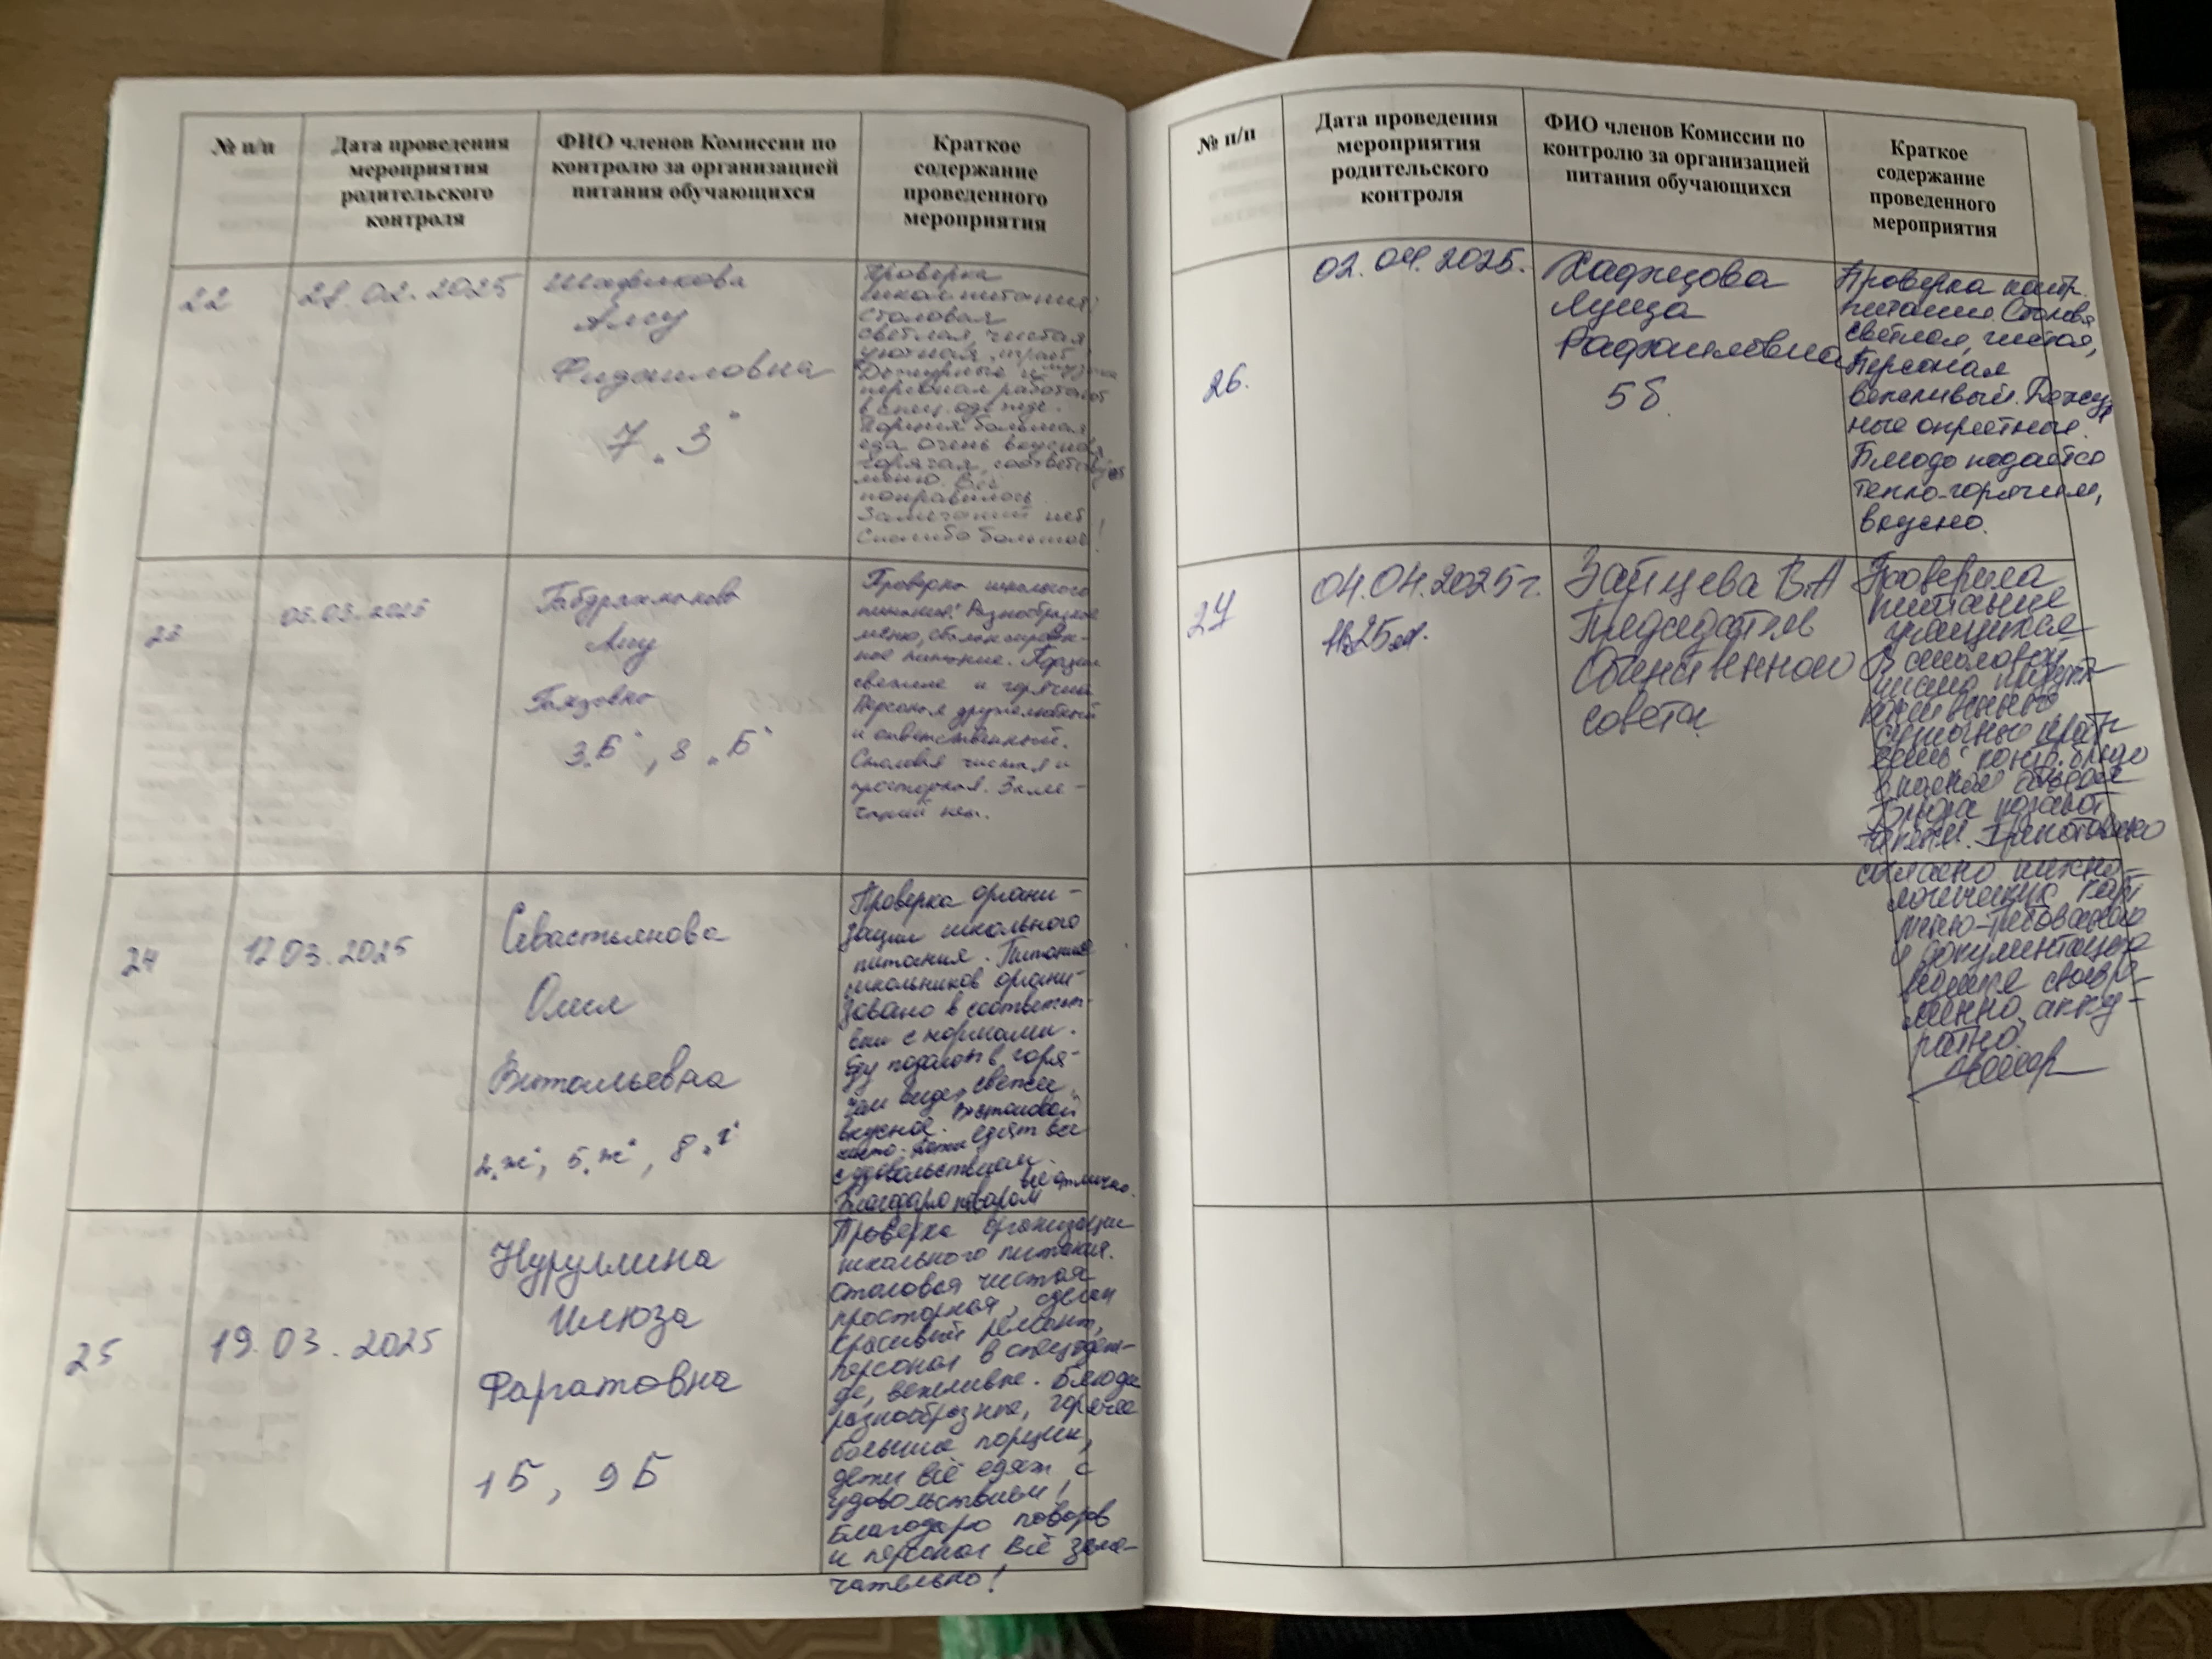 № п/п
Дата проведения
мероприятия
родительского
контроля
ФИО членов Комиссии по
контролю за организацией
питания обучающихся
Краткое
содержание
проведенного
мероприятия
22
28.02.2025
Шафикова
Алсу
Фидаиловна
7 „З"
Проверка
школ. питания!
Столовая
светлая, чистая
уютная, играет
музыка
Дежурные и
персонал работают
в спец. одежде.
Порция большая
еда очень вкусная
горячая, соответствует
меню. Всё
понравилось
Замечаний нет
Спасибо большое!
23
05.03.2025
Габдрахманова
Алсу
3„Б", 8 „Б"
Проверка школьного
питания! Разнообразное
меню, сбалансирован-
ное питание. Порции
свежие и горячие
Персонал дружелюбный
и ответственный.
Столовая чистая и
просторная. Заме-
чаний нет.
24
12.03.2025
Севастьянова
Олися
Витальевна
2„Ж", 5„Ж", 8„г"
Проверка органи-
зации школьного
питания. Питание
школьников органи-
зовано в соответст-
вии с нормами.
Еду подают в горя-
чем виде, свежее,
вкусное. В столовой
чисто. Дети едят все
с удовольствием.
все отлично.
Благодарю поваров
25
19.03.2025
Нуруллина
Илюза
Фаргатовна
1Б, 9Б
Проверка организации
школьного питания.
Столовая чистая
просторная, сделан
красивый ремонт,
персонал в спецодеж-
де, вежливые. Блюда
разнообразные, горячие
большие порции,
дети всё едят с
удовольствием!
Благодарю поваров
и персонал Всё заме-
чательно!
№ п/п
Дата проведения
мероприятия
родительского
контроля
ФИО членов Комиссии по
контролю за организацией
питания обучающихся
Краткое
содержание
проведенного
мероприятия
26.
02.04.2025.
Луиза
Рафаиловна
5б.
Проверка контр.
питания. Столовая
светлая, чистая,
Персонал
вежливый. Дежур
ные опрятные.
Блюдо подается
тепло-горячим,
вкусно.
27
04.04.2025г.
11ч25м.
Зайцева В.А
Председатель
Общественного
совета
Проверила
питание
учащихся
В столовой
чисто
суточные пробы
контр. блюдо
Блюда подают
Приготовлено
согласно техно-
логических карт
меню-требование
и документация
ведется своевре-
менно, акку-
ратно.